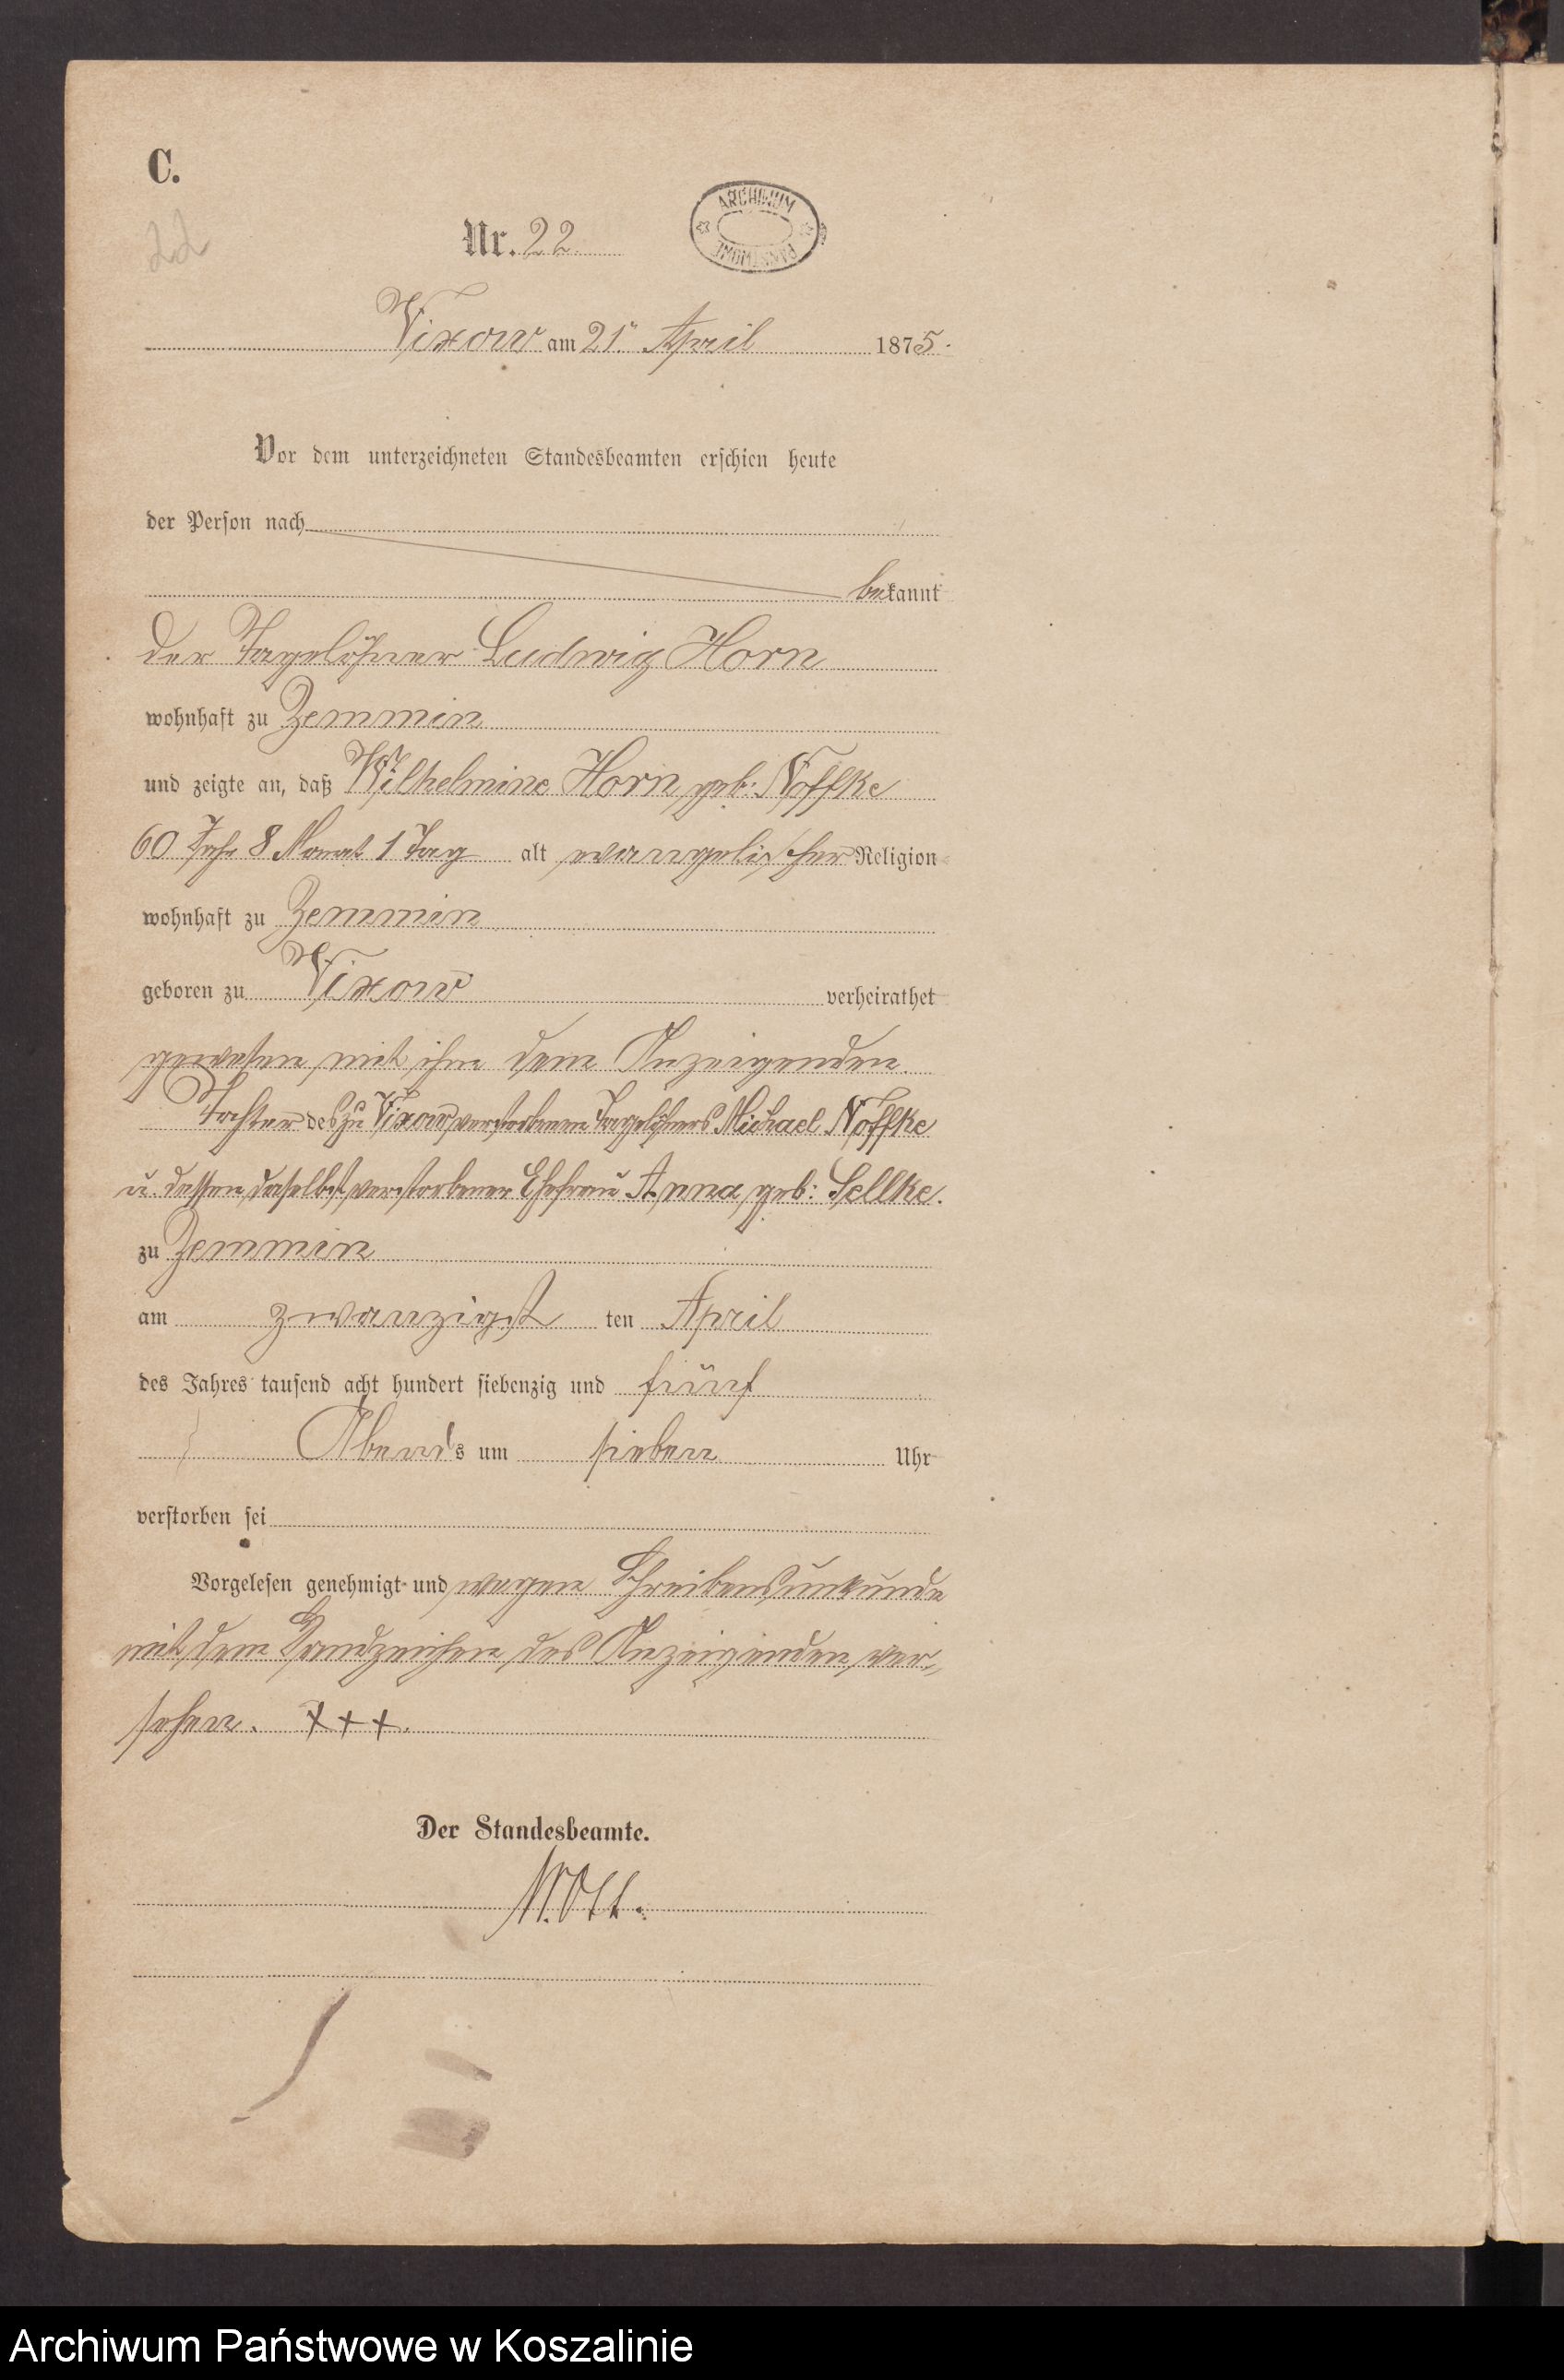 C.
22
Nr. 22
ARCHIWUM
PAŃSTWOWE
Vixow am 21. April 1875.
Vor dem unterzeichneten Standesbeamten erschien heute
der Person nach
bekannt
der Tagelöhner Ludwig Horn
wohnhaft zu Zemmin
und zeigte an, daß Wilhelmine Horn geb: Noffke
60 Jahr 8 Monat 1 Tag alt evangelischer Religion
wohnhaft zu Zemmin
geboren zu Vixow verheirathet
gewesen mit ihm dem Anzeigenden.
Tochter des zu Vixow verstorbenen Tagelöhners Michael Noffke
u. dessen daselbst verstorbener Ehefrau Anna geb: Sellke.
zu Zemmin
am zwanzigst ten April
des Jahres tausend acht hundert siebenzig und fünf
Abends um sieben Uhr
verstorben sei
Vorgelesen genehmigt und wegen Schreibensunkunde
mit dem Handzeichen des Anzeigenden ver-
sehen. +++.
Der Standesbeamte.
Archiwum Państwowe w Koszalinie